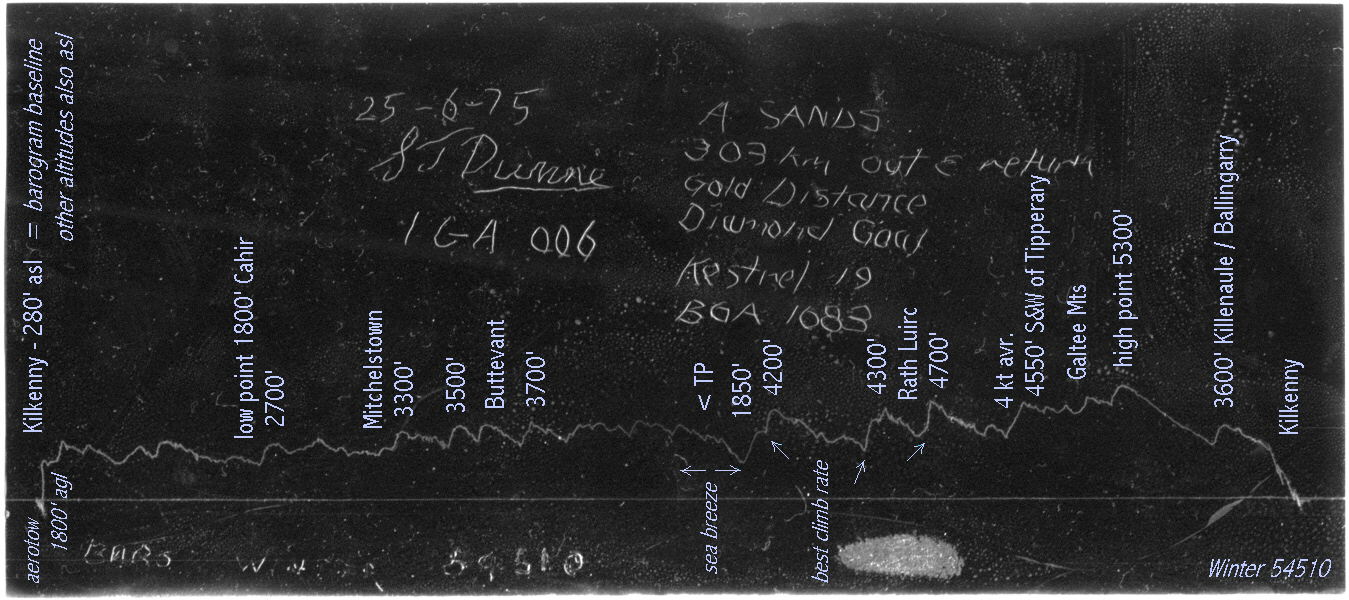 Kilkenny - 280' asl = barogram baseline
other altitudes also asl
25-6-75
SJ Dunne
IGA 006
A SANDS
303 km out & return
Gold Distance
Diamond Goal
Kestrel 19
BGA 1083
low point 1800' Cahir
2700'
Mitchelstown
3300'
3500'
Buttevant
3700'
< TP
1850'
4200'
4300'
Rath Luirc
4700'
4 kt avr.
4550' S&W of Tipperary
Galtee Mts
high point 5300'
3600' Killenaule / Ballingarry
Kilkenny
aerotow
1800' agl
sea breeze
best climb rate
WINTER 54510
Winter 54510